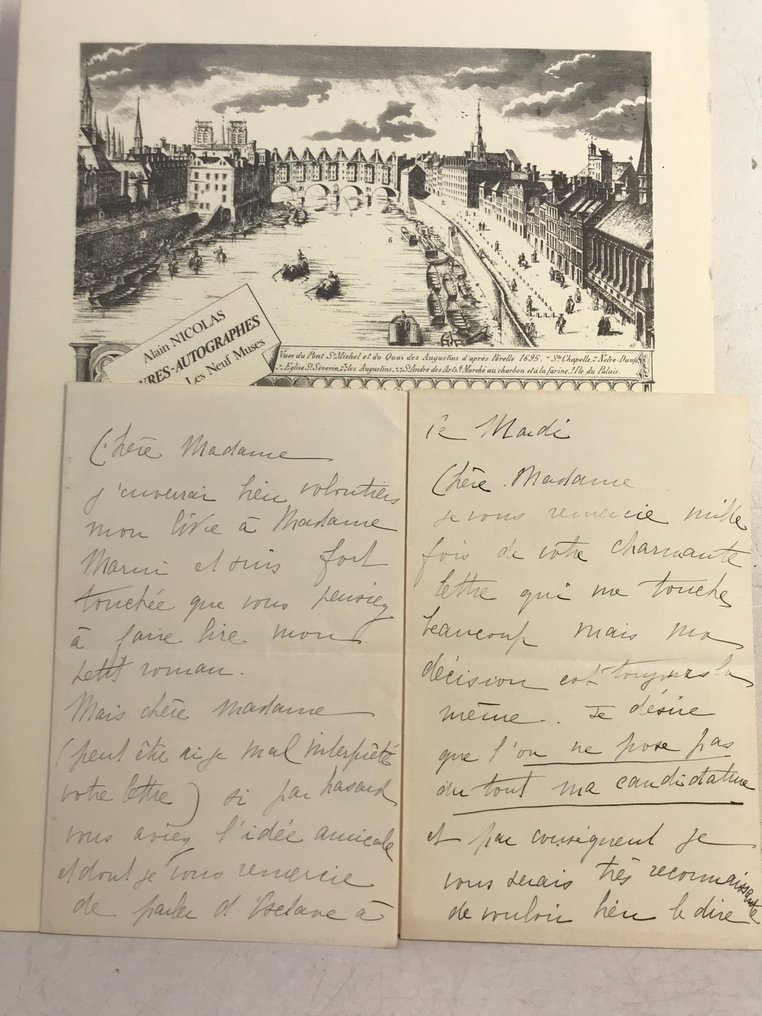 6
Alain NICOLAS
VRES-AUTOGRAPHES
Les Neuf Muses
Vues du Pont St Michel et du Quai des Augustins d'après Pérelle 1695. Ste Chapelle Notre-Dame
Eglise St Severin les Augustins, St André des Arts Marché au charbon et à la farine. Ile du Palais.
Chère Madame
j'enverrai bien volontiers
mon livre à Madame
et suis fort
touchée que vous pensiez
à faire lire mon
petit roman.
Mais chère madame
(peut être ai je mal interprêté
votre lettre) si par hasard
vous aviez l'idée amicale
et dont je vous remercie
de parler d'Esclave à
ce Mardi
Chère Madame
je vous remercie mille
fois de votre charmante
lettre qui me touche
beaucoup mais ma
décision est toujours la
même. Je désire
que l'on ne pose pas
du tout ma candidature
et par conséquent je
vous serais très reconnaissante
de vouloir bien le dire